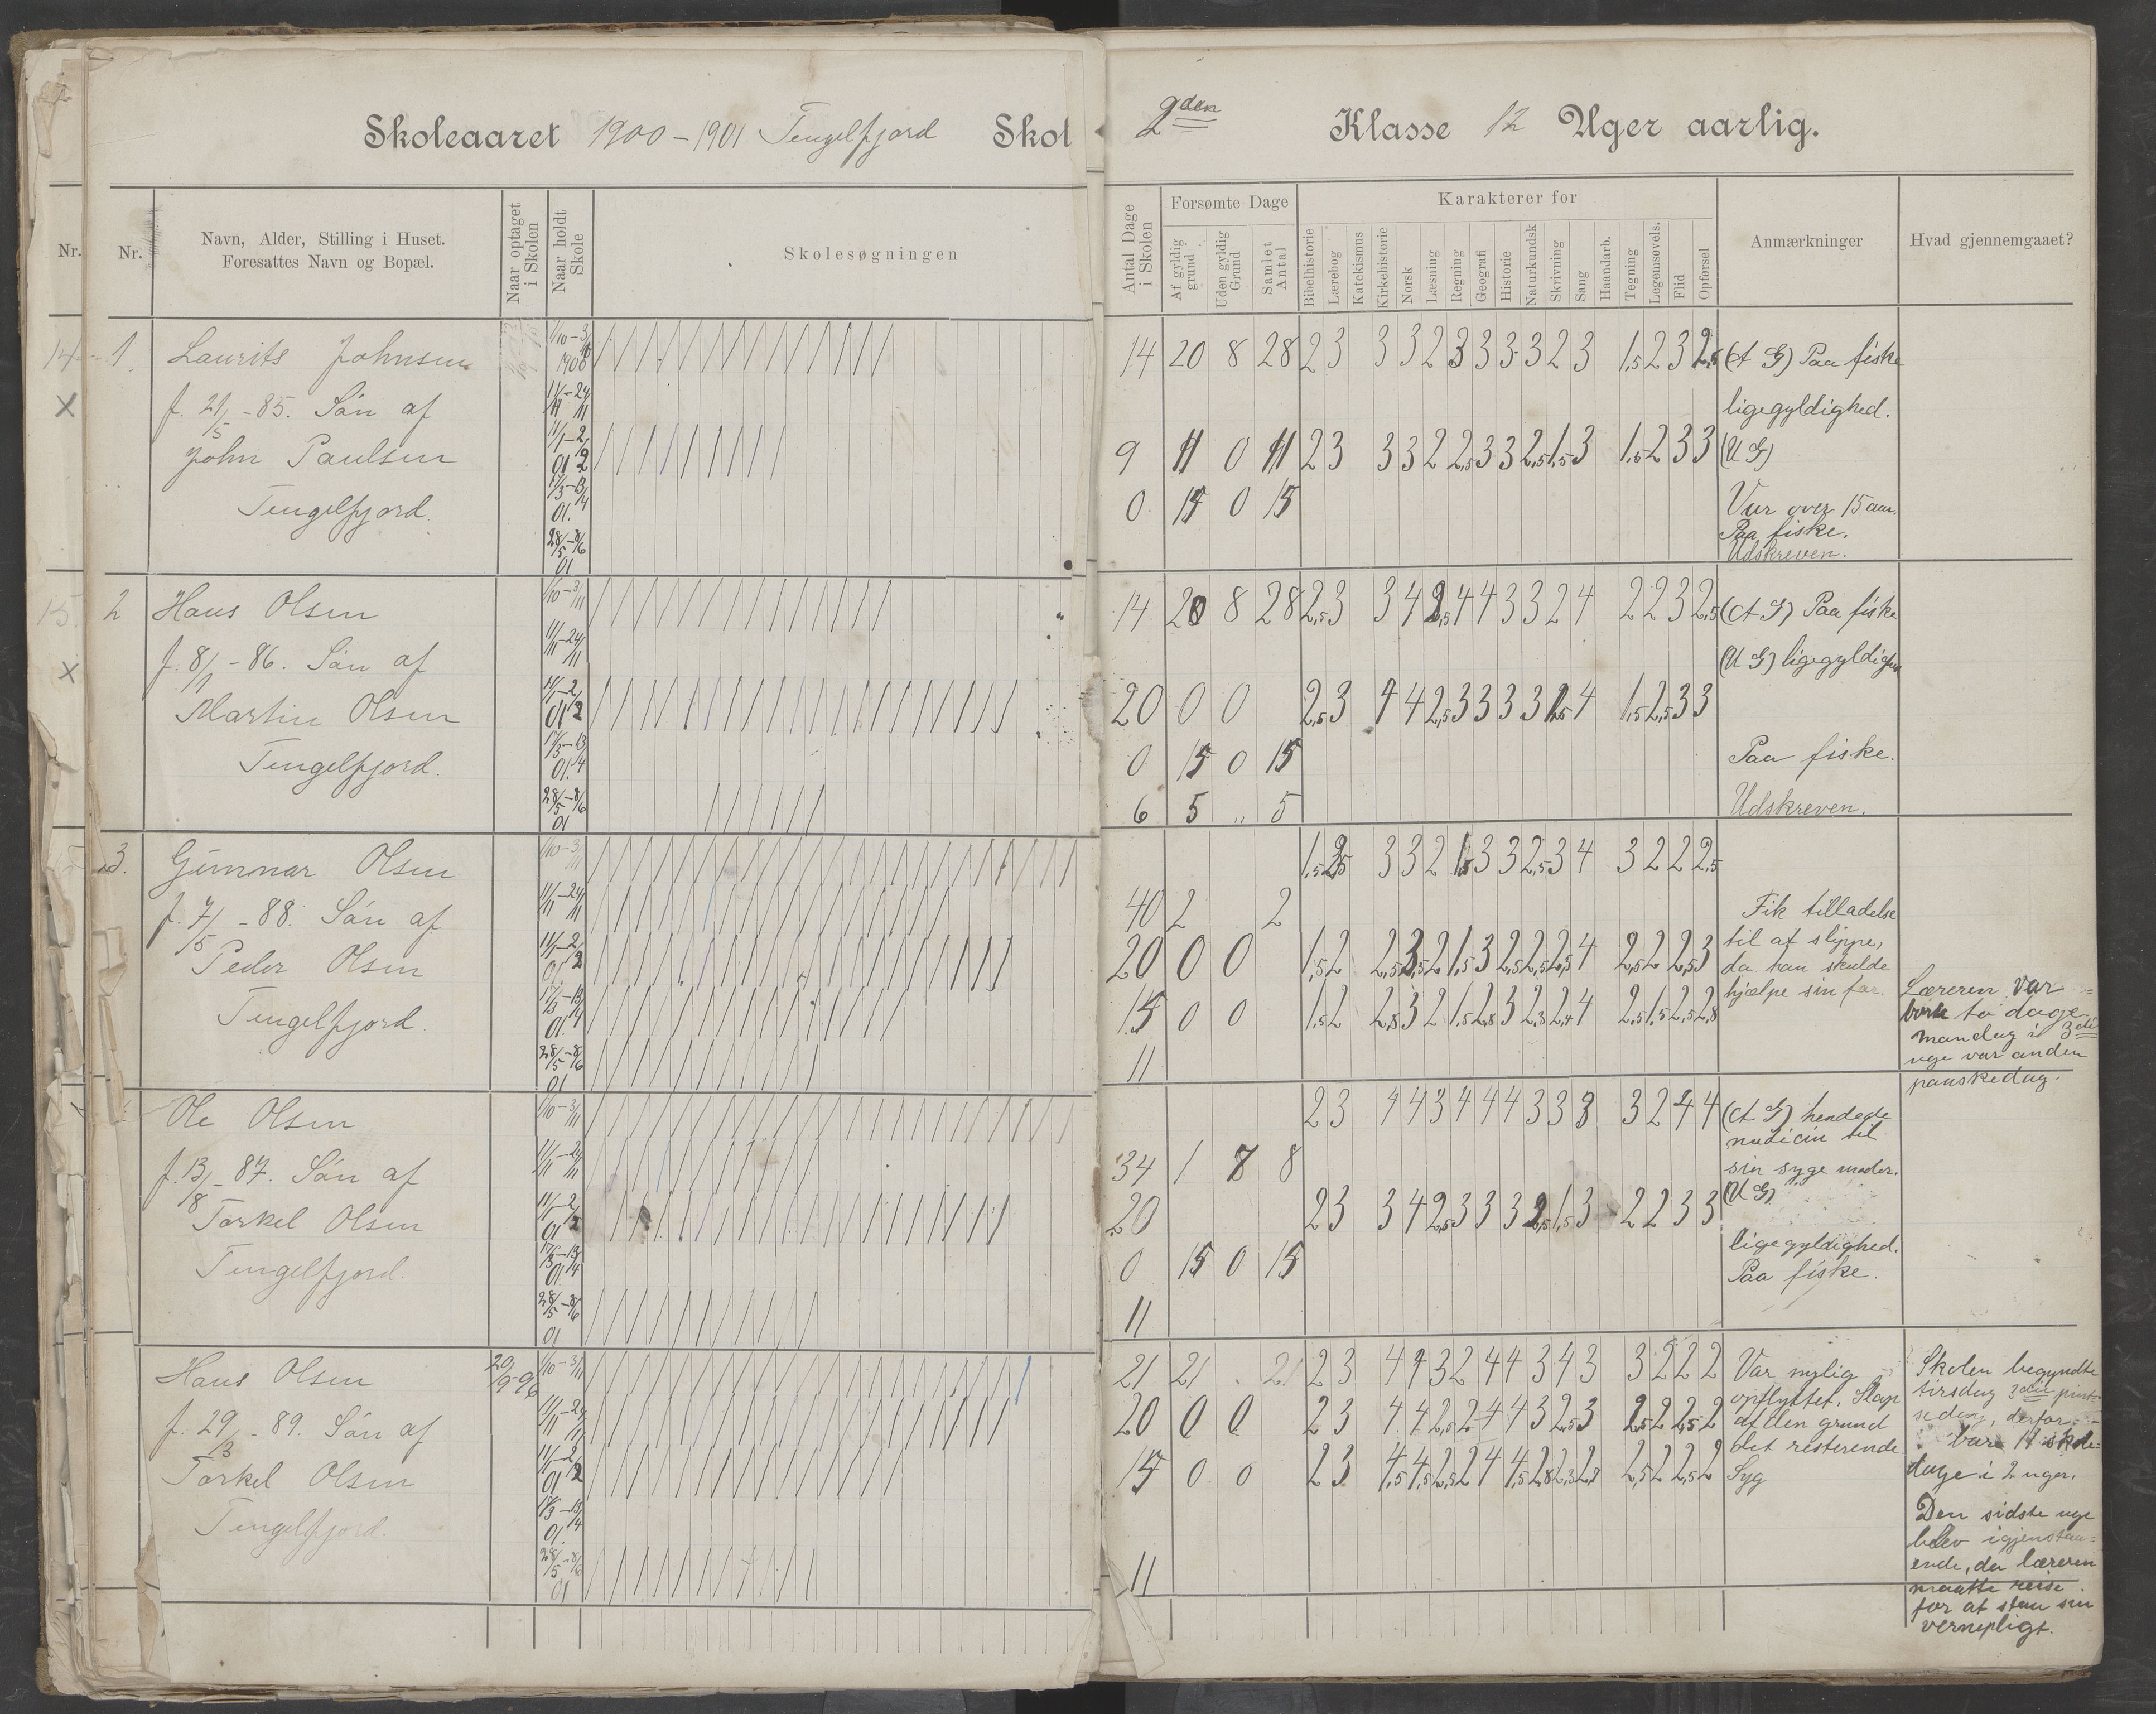 Skoleaaret 1900–1901 Tengelfjord Skol
2den Klasse 12 Uger aarlig.
Nr.
Nr.
Navn, Alder, Stilling i Huset.
Foresattes Navn og Bopæl.
Naar optaget i Skolen
Naar holdt Skole
Skolesøgningen
Antal Dage i Skolen
Forsømte Dage
Af gyldig grund.
Uden gyldig Grund
Samlet Antal
Karakterer for
Bibelhistorie
Lærebog
Katekismus
Kirkehistorie
Norsk
Læsning
Regning
Geografi
Historie
Naturkundsk
Skrivning
Sang
Haandarb.
Tegning
Legemsøvels.
Flid
Opførsel
Anmærkninger
Hvad gjennemgaaet?
1. Laurits Johnsen
f. 21/5 -85. Søn af
John Paulsen
Tengelfjord.
1/10 – 3/11 1900
11/11 – 24/11
11/1 – 2/2 01
17/3 – 13/4 01.
28/5 – 8/6 01
14 20 8 28 2 3 3 3 2 3 3 3 3 2 3 1,5 2 3 2,5 (A G) Paa fiske
ligegyldighed.
9 11 0 11 2 3 3 3 2 2,5 3 3 2,5 1,5 3 1,5 2 3 3 (U G)
0 15 0 15 Var over 15 aar.
Paa fiske.
Udskreven.
2 Hans Olsen
f. 8/1 -86. Søn af
Martin Olsen
Tengelfjord.
1/10 – 3/11
11/11 – 24/11
11/1 – 2/2 01
17/3 – 13/4 01.
28/5 – 8/6 01
14 20 8 28 2,5 3 3 4 2,5 4 4 3 3 2 4 2 2 3 2,5 (A G) Paa fiske
(U G)
20 0 0 2,5 3 4 4 2,5 3 3 3 3 1,5 4 1,5 2,5 3 3
0 15 0 15 Paa fiske.
6 5 „ 5 Udskreven.
3. Gunnar Olsen
f. 7/5 -88. Søn af
Peder Olsen
Tengelfjord.
1/10 – 3/11
11/11 – 24/11
11/1 – 2/2 01
17/3 – 13/4 01.
28/5 – 8/6 01
1,5 2,5 3 3 2 1,5 3 3 2,5 3 4 3 2 2 2,5
40 2 2 Fik tilladelse
20 0 0 til at slippe,
da han skulde
hjælpe sin far.
15 0 0
11
Læreren var
bork to dage,
mandag i 3die
uge var anden
paaskedag.
Ole Olsen
f. 13/8 -87. Søn af
Torkel Olsen
Tengelfjord.
1/10 – 3/11
11/11 – 24/11
11/1 – 2/2 01
17/3 – 13/4 01.
28/5 – 8/6 01
2 3 4 4 3 4 4 4 3 3 3 3 2 4 4 (A G) hendede
medicin til
34 1 7 8 sin syge moder.
20 2 3 3 4 2,5 3 3 3 2,5 1,5 3 2 2 3 3 (U G)
ligegyldighed.
0 15 0 15 Paa fiske.
11
Hans Olsen 20/9 -96
f. 29/3 -89. Søn af
Torkel Olsen
Tengelfjord.
1/10 – 3/11
11/11 – 24/11
11/1 – 2/2 01
17/3 – 13/4 01.
28/5 – 8/6 01
21 21 21 2 3 4 4 3 2 4 4 3 4 3 3 2 2 2 Var nylig
20 0 0 opflyttet. Slap
af den grund
det resterende
15 0 0 Syg
11
Skolen begyndte
tirsdag 3die
derfor
bare 11 skole-
dage i 2 uger.
Den sidste uge
blev igjenstaa-
ende, da læreren
maatte reise
for at staa sin
vernepligt.